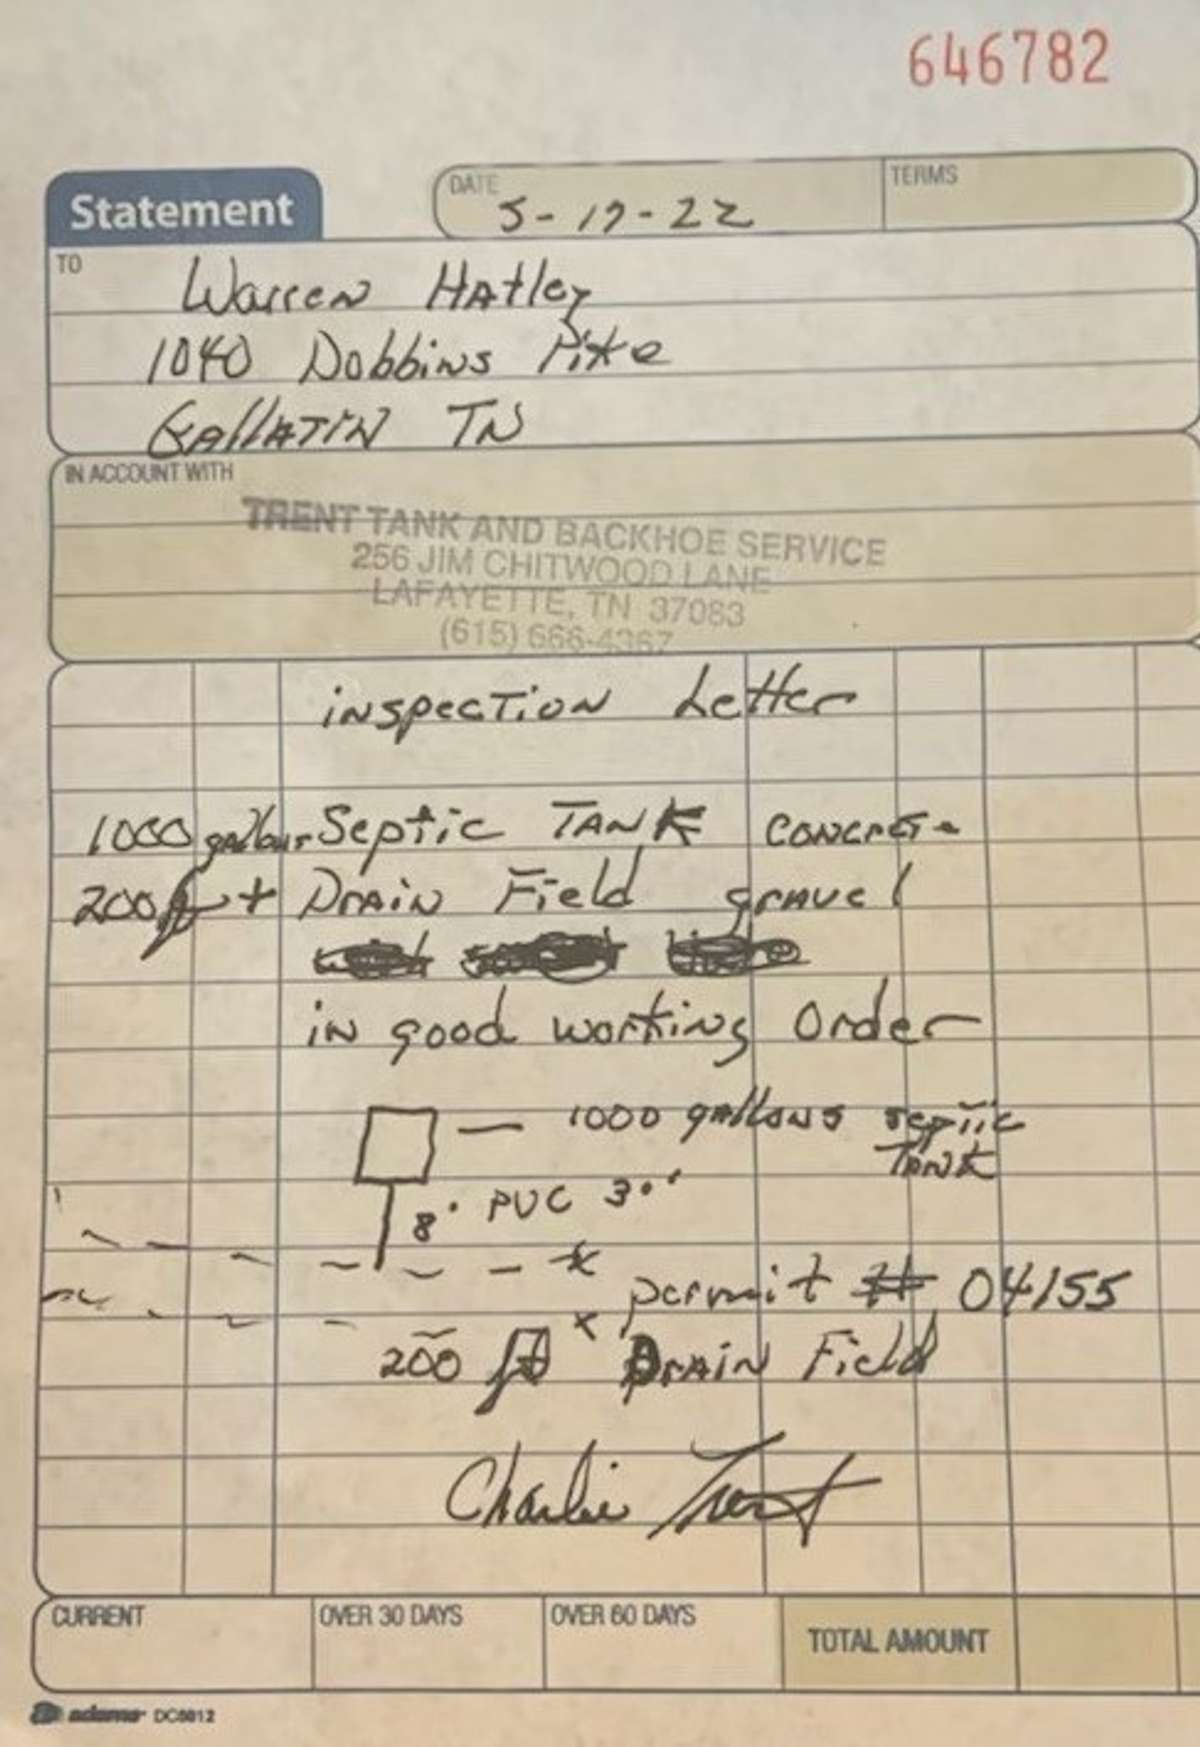 646782
Statement
DATE 5-17-22 TERMS
TO Warren Hatley
1040 Dobbins Pike
Gallatin TN
IN ACCOUNT WITH
TRENT TANK AND BACKHOE SERVICE
256 JIM CHITWOOD LANE
LAFAYETTE, TN 37083
(615) 666-4367
inspection Letter
1000 gallons Septic TANK concrete
200 ft Drain Field gravel
in good working Order
1000 gallons septic
TANK
8' PVC 3''
permit # 04155
200 ft Drain Field
Charlie Trent
CURRENT OVER 30 DAYS OVER 60 DAYS TOTAL AMOUNT
adams DC5812